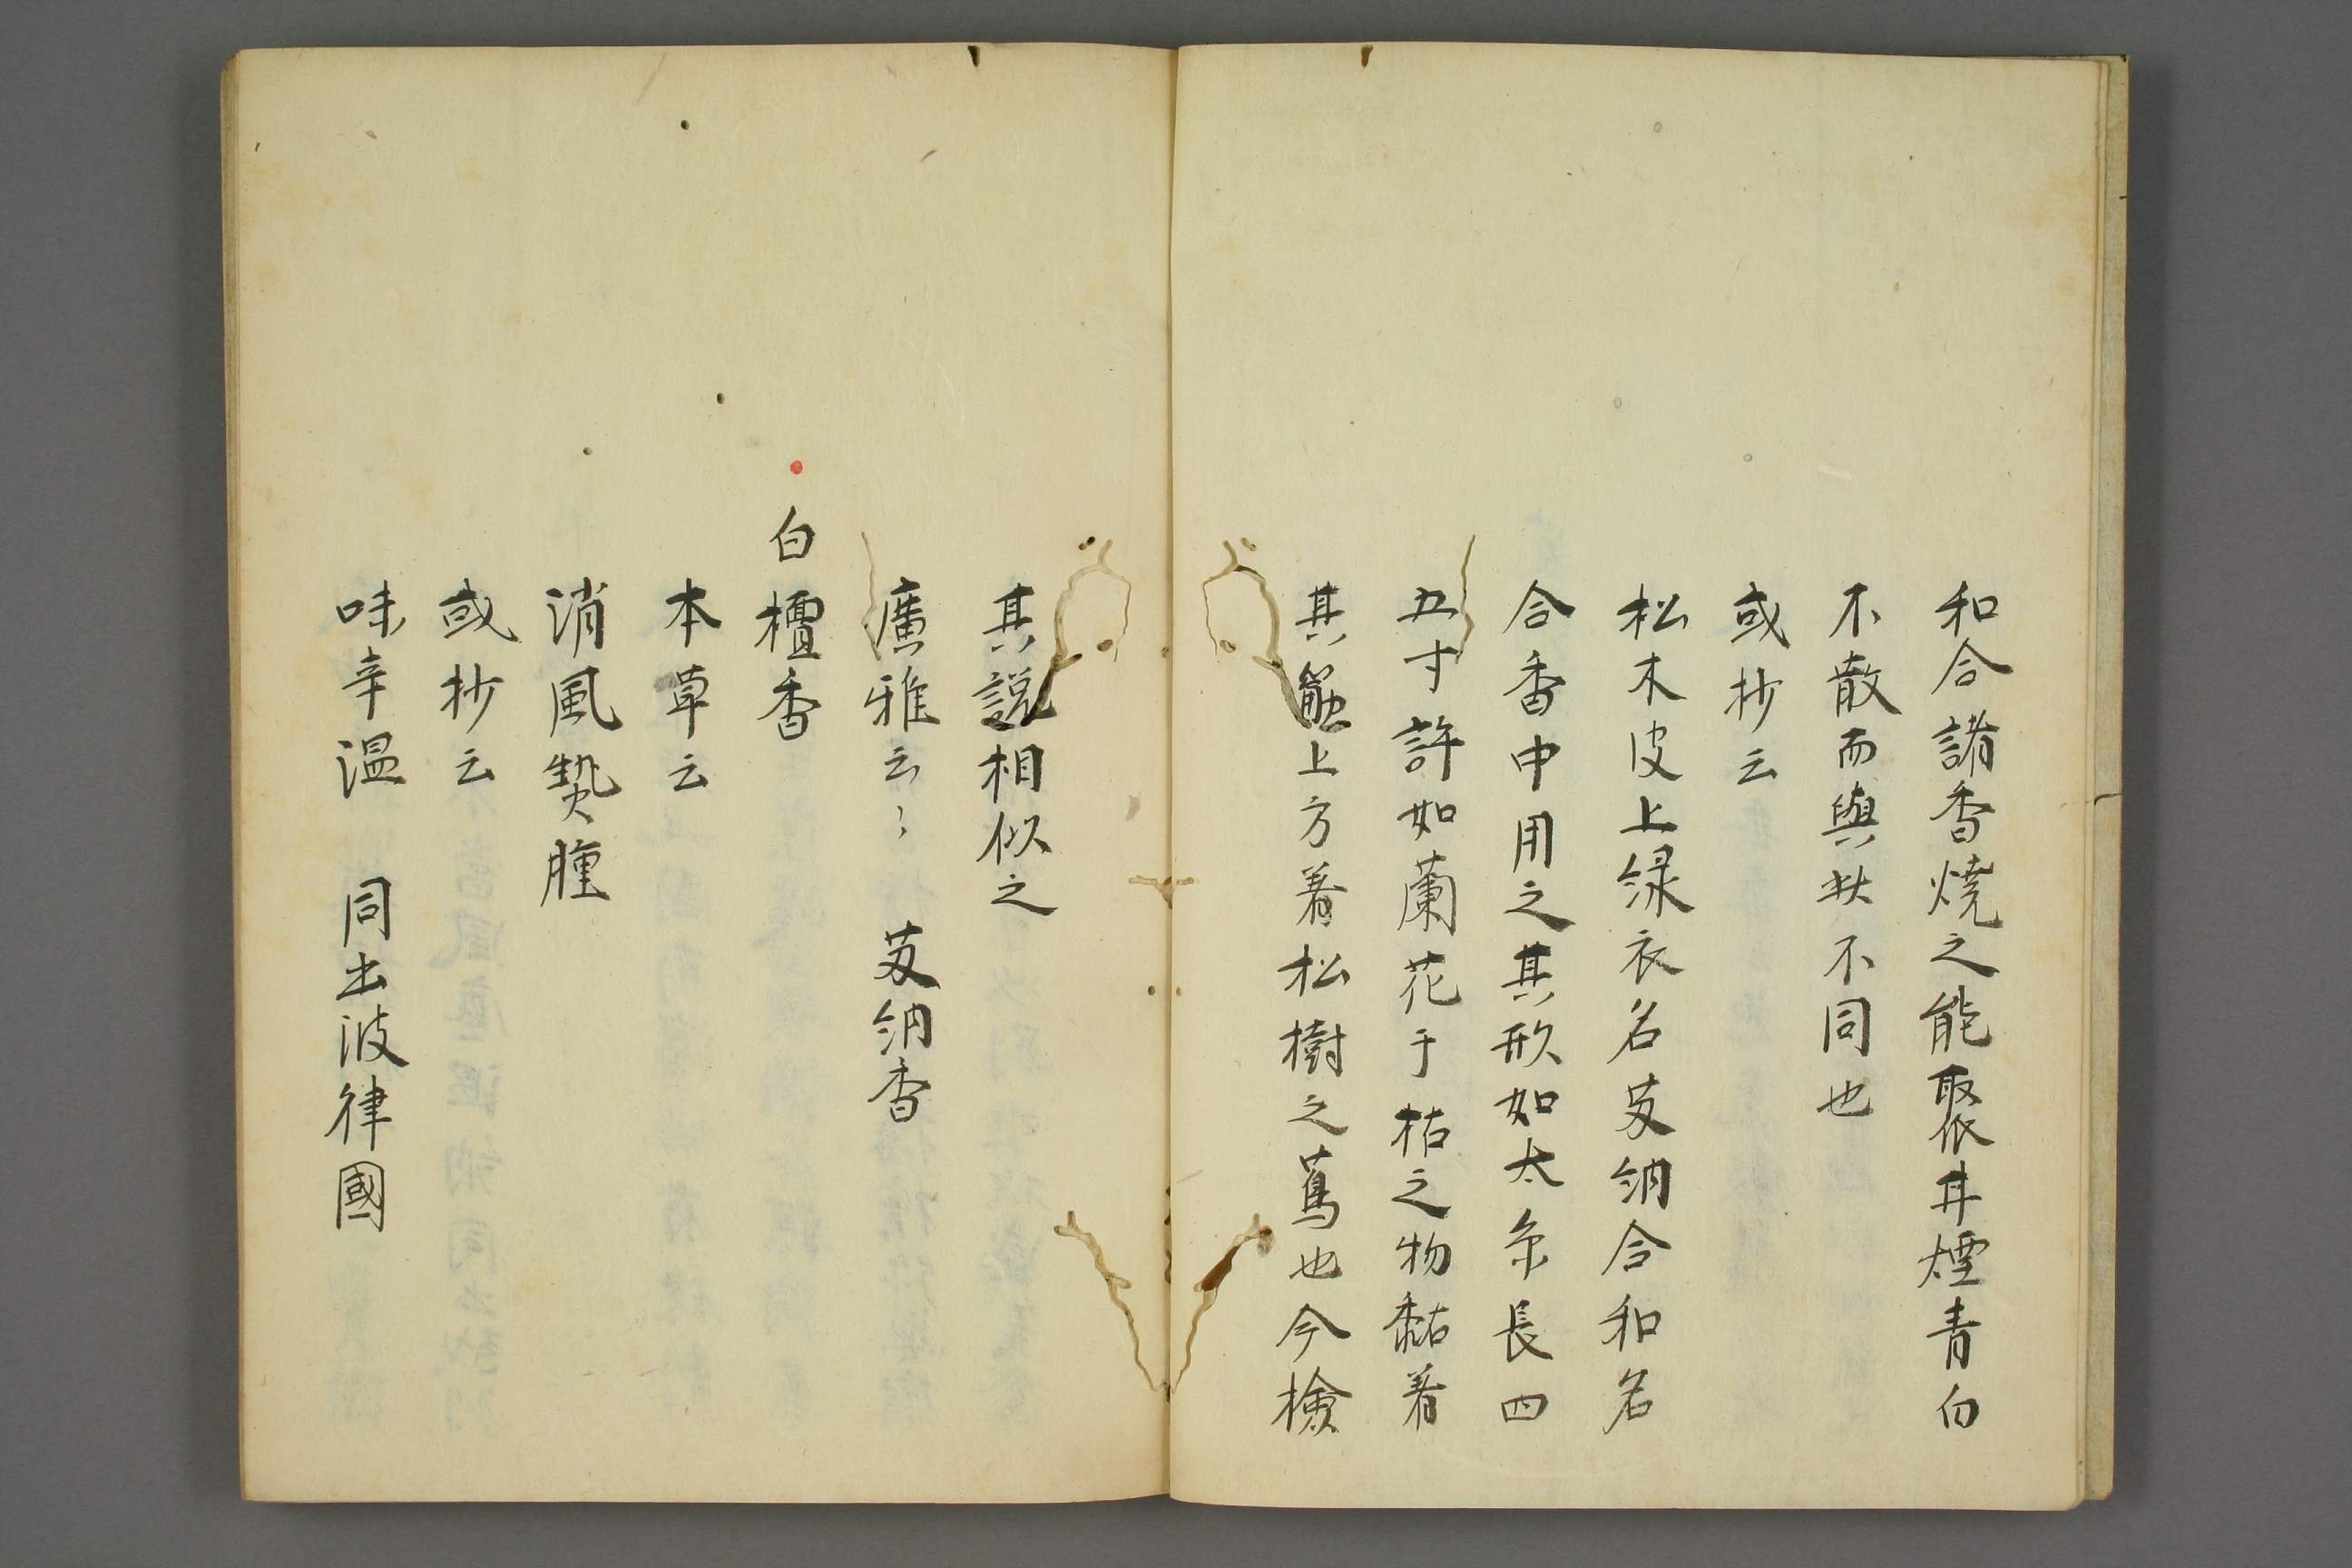 和合諸香燒之能聚其煙青白
不散而與㹜不同也
或抄云
松木皮上緑衣名芆納合和名
合香中用之其形如太糸長四
五寸許如蘭花于枯之物黏着
其上方着松樹之蔦也今檢
其説相似之
廣雅云〻　芆納香
白檀香
本草云
消風熱腫
或抄云
味辛温　同出波律國